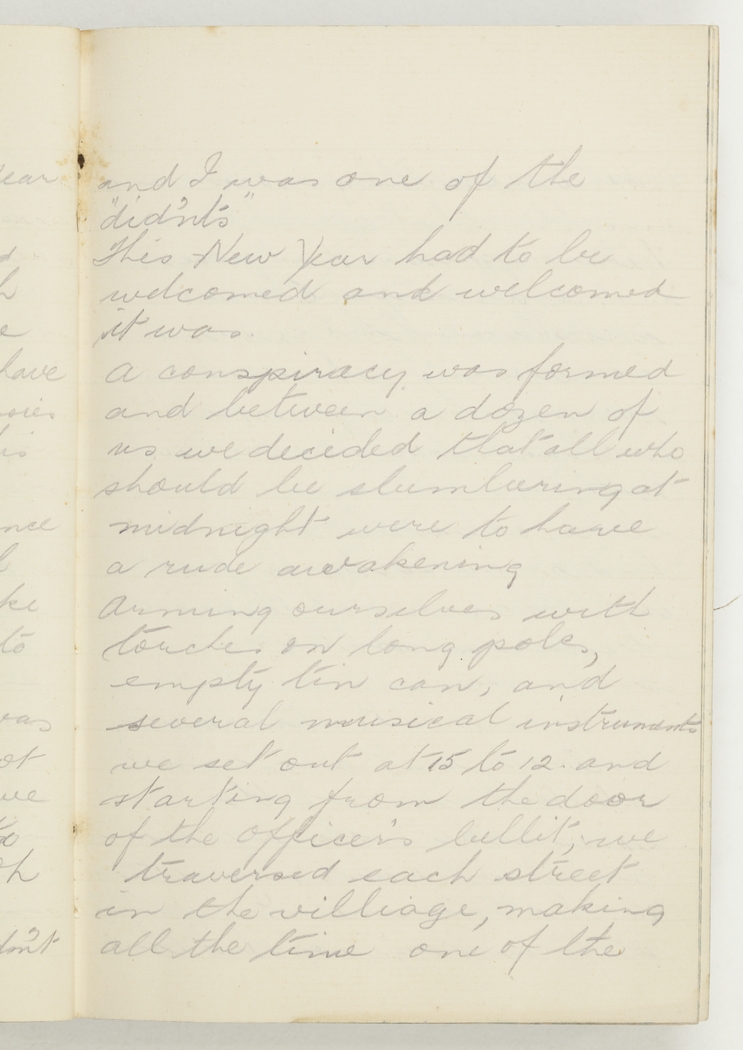 and I was one of the
"did'nts"
This New Year had to be
welcomed and welcomed
it was.
A conspiracy was formed
and between a dozen of
us we decided that all who
should be slumbering at
midnight were to have
a rude awakening
Arming ourselves with
torches on long poles,
empty tin can, and
several musical instruments
we set out at 15 to 12. and
starting from the door
of the officer's billit, we
traversed each street
in the villiage, making
all the time one of the